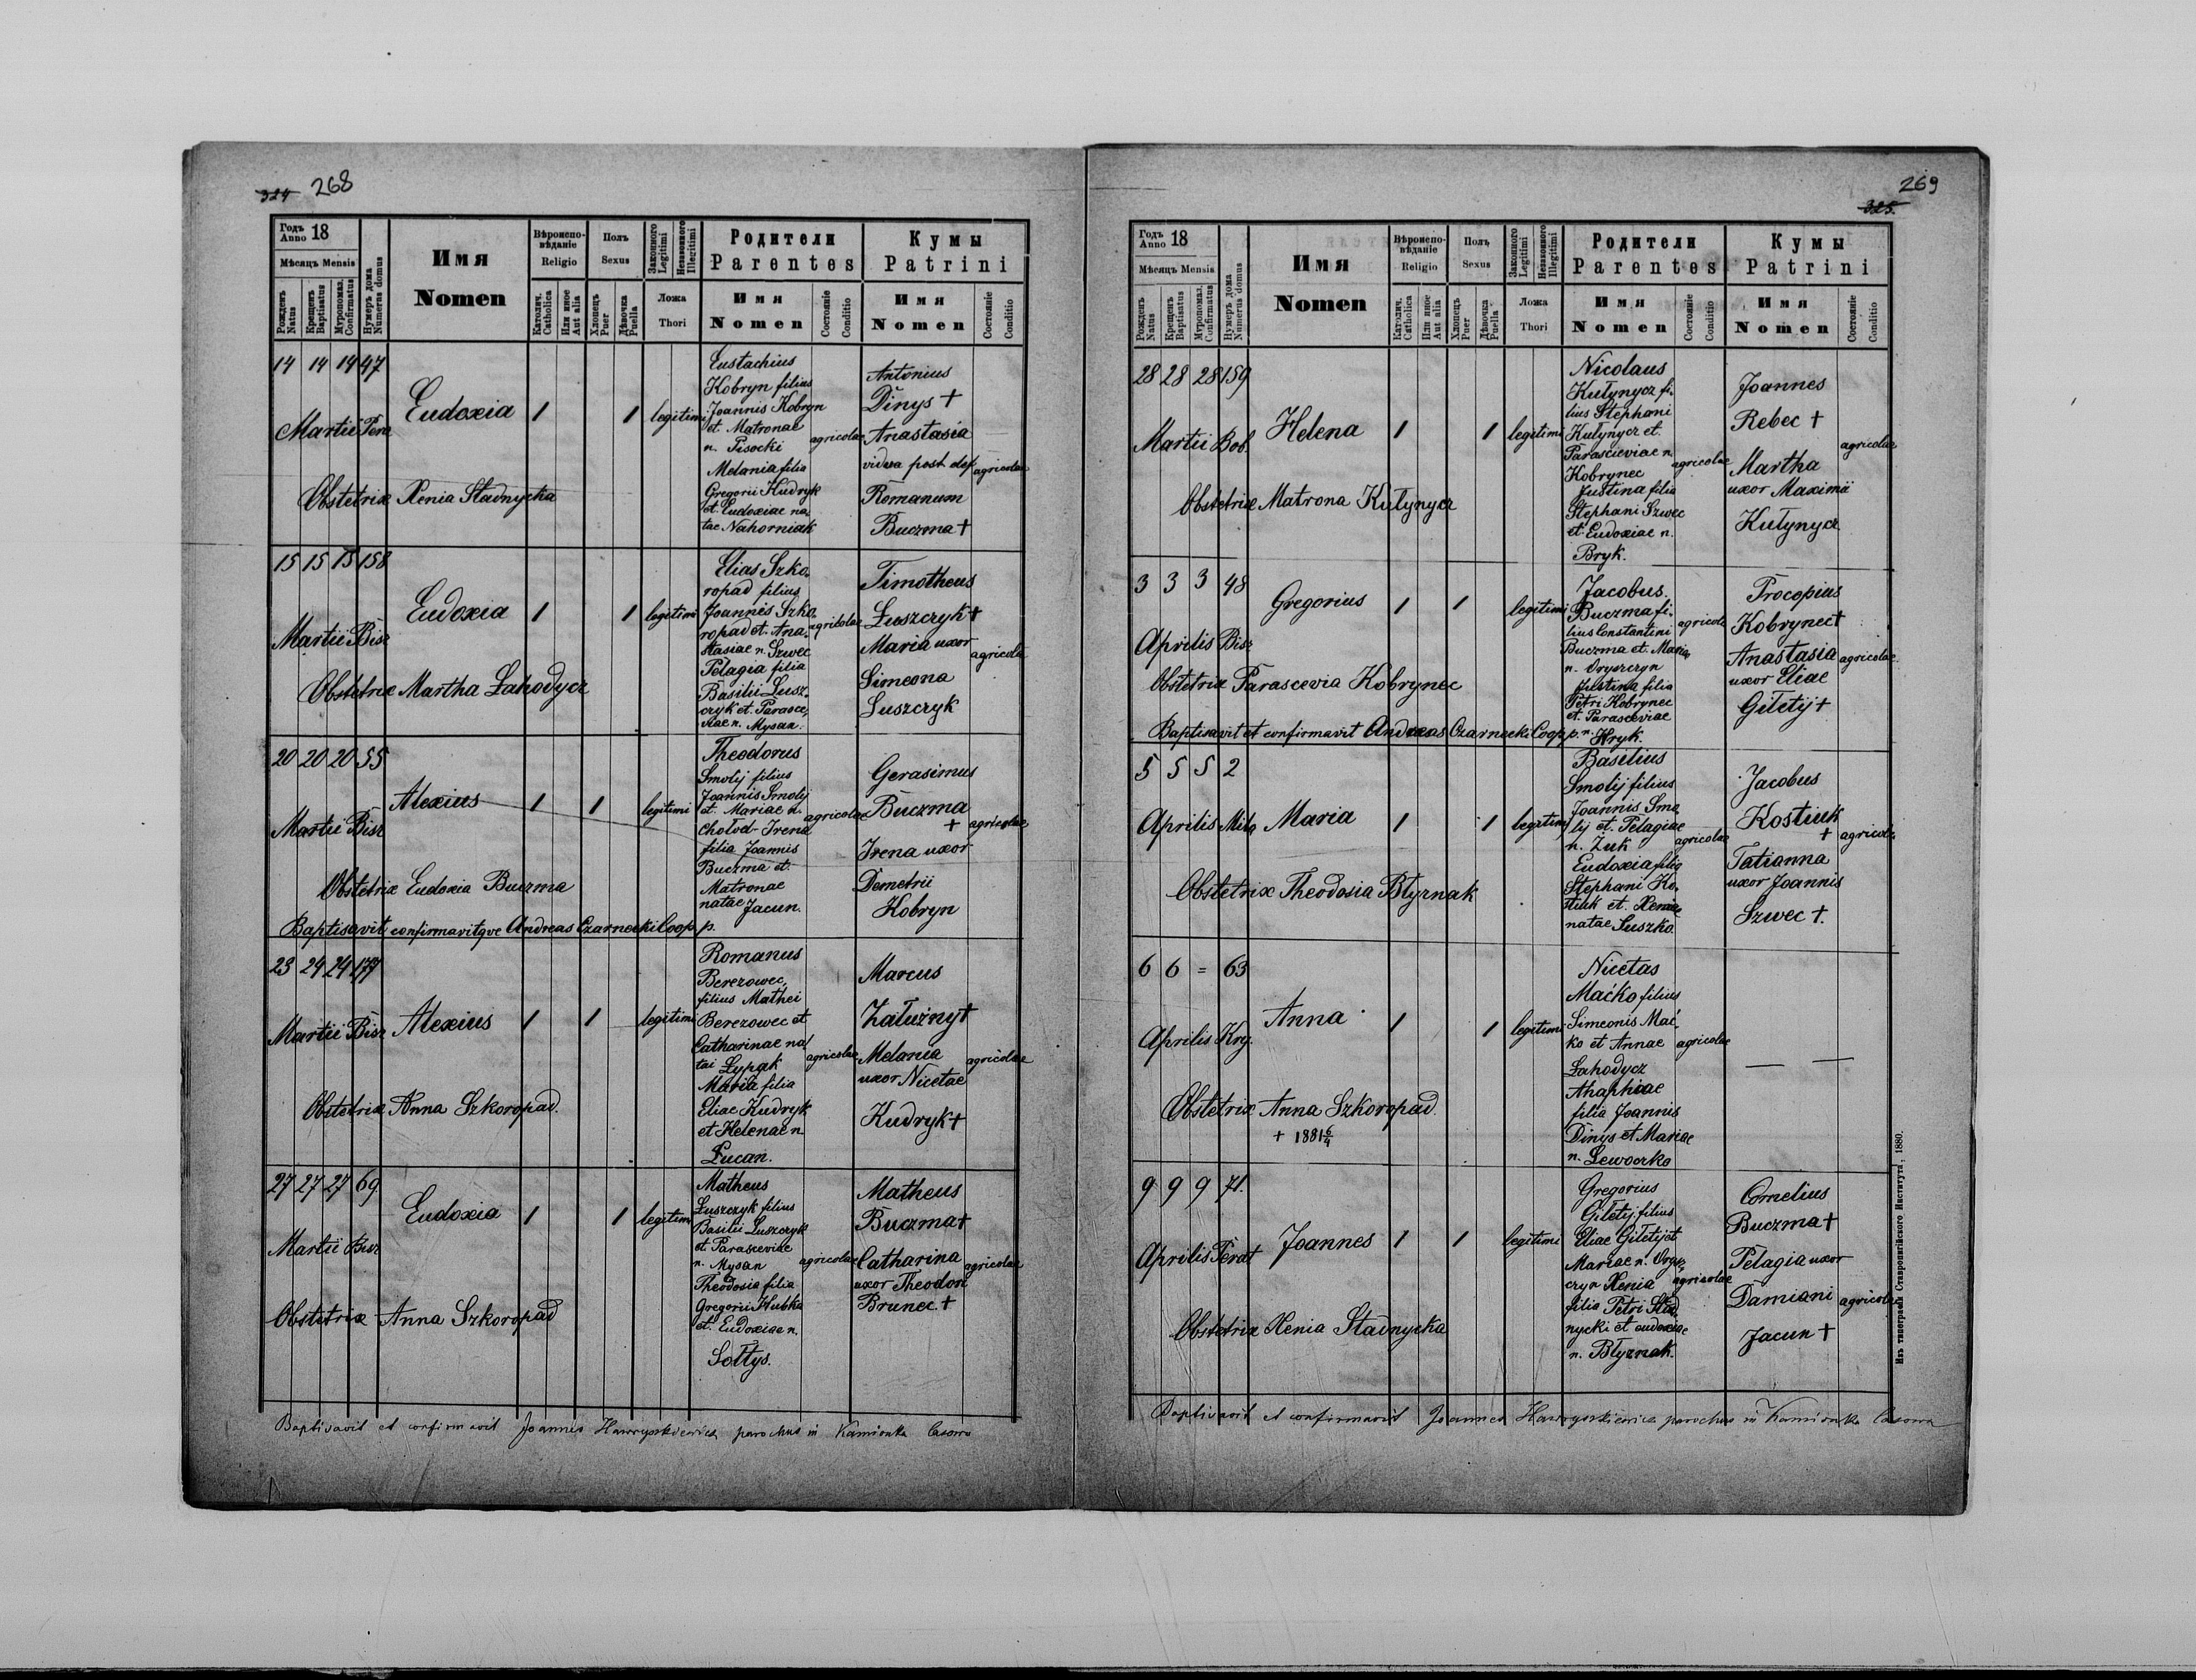 324 268
Годъ Anno 18
Мѣсяцъ Mensis
Рожденъ Natus
Крещенъ Baptisatus
Мѵропомаз. Confirmatus
Нумеръ дома Numerus domus
Имя
Nomen
Вѣроиспо-вѣданіе
Religio
Католич. Catholica
Или иное Aut alia
Полъ
Sexus
Хлопецъ Puer
Дѣвочка Puella
Законного Legitimi
Незаконного Illegitimi
Ложа
Thori
Родители
Parentes
Имя
Nomen
Состояніе Conditio
Кумы
Patrini
Имя
Nomen
Состояніе Conditio
14 14 14 47
Martii Pera
Eudoxia 1 1 legitimi
Eustachius
Kobryn filius
Joannis Kobryn
et Matronae
n. Pisocki
agricolae
Melania filia
Gregorii Kudryk
et Eudoxiae na
tae Nahorniak
Antonius
Dinys +
Anastasia
vidua post def
agricolae
Romanum
Buczma +
Obstetrix Xenia Stadnycka
15 15 15 158
Martii Bisz
Eudoxia 1 1 legitimi
Elias Szko
ropad filius
Joannis Szko
ropad et Ana
stasiae n. Szwec
agricolae
Pelagia filia
Basilii Lusz
czyk et Parasce
viae n. Mysan.
Timotheus
Łuszczyk +
Maria uxor
Simeona
Luszczyk
agricolae
Obstetrix Martha Lahodycz
20 20 20 55
Martii Bisz
Alexius 1 1 legitimi
Theodorus
Smolij filius
Joannis Smolij
et Mariae n.
Chołod - Irena
filia Joannis
Buczma et
Matronae
natae Jacun.
agricolae
Gerasimus
Buczma
+ agricolae
Irena uxor
Demetrii
Kobryn
Obstetrix Eudoxia Buczma
Baptisavit confirmavitque Andreas Czarnecki Coop. p.
23 24 24 177
Martii Bisz
Alexius 1 1 legitimi
Romanus
Berezowec,
filius Mathei
Berezowec et
Catharinae na
tai Lypak
Maria filia
Eliae Kudryk
et Helenae n.
Lucan.
agricolae
Marcus
Załużny +
Melania
uxor Nicetae
Kudryk +
agricolae
Obstetrix Anna Szkoropad.
27 27 27 69
Martii Bisz
Eudoxia 1 1 legitimi
Matheus
Łuszczyk filius
Basilii Luszczyk
et Parasceviae
n. Mysan
Theodosia filia
Gregorii Hubka
et Eudoxiae n.
Sołtys.
agricolae
Matheus
Buczma +
Catharina
uxor Theodori
Brunec +
agricolae
Obstetrix Anna Szkoropad
Baptisavit et confirmavit Joannes Hawryszkiewicz parochus in Kamionka
269
325.
Годъ Anno 18
Мѣсяцъ Mensis
Рожденъ Natus
Крещенъ Baptisatus
Мѵропомаз. Confirmatus
Нумеръ дома Numerus domus
Имя
Nomen
Вѣроиспо-вѣданіе
Religio
Католич. Catholica
Или иное Aut alia
Полъ
Sexus
Хлопецъ Puer
Дѣвочка Puella
Законного Legitimi
Незаконного Illegitimi
Ложа
Thori
Родители
Parentes
Имя
Nomen
Состояніе Conditio
Кумы
Patrini
Имя
Nomen
Состояніе Conditio
28 28 28 159
Martii Bob.
Helena 1 1 legitimi
Nicolaus
Kułynycz fi
lius Stephani
Kułynycz et
Parasceviae n.
Kobrynec
Justina filia
Stephani Szwec
et Eudoxiae n.
Bryk.
agricolae
Joannes
Rebec +
Martha
uxor Maximi
Kułynycz
agricolae
Obstetrix Matrona Kułynycz
3 3 3 48
Aprilis Bisz
Gregorius 1 1 legitimi
Jacobus
Buczma fi
lius Constantini
Buczma et Mariae
n. Oryszczyn
Justina filia
Petri Kobrynec
et Parasceviae
n. Hryk.
agricolae
Procopius
Kobrynec +
Anastasia
uxor Eliae
Giletij +
agricolae
Obstetrix Parascevia Kobrynec
Baptisavit et confirmavit Andreas Czarnecki Coop p.
5 5 5 2
Aprilis
Maria 1 1 legitimi
Basilius
Smolij filius
Joannis Smo
lij et Pelagiae
n. Zuk
Eudoxia filia
Stephani Ko
stiuk et Xeniae
natae Suszko
agricolae
Jacobus
Kostiuk
+ agricolae
Tatianna
uxor Joannis
Szwec +.
Obstetrix Theodosia Błyznak
6 6 = 63
Aprilis Krg.
Anna 1 1 legitimi
Nicetas
Maćko filius
Simeonis Mać
ko et Annae
Lahodycz
Ahaphiae
filia Joannis
Dinys et Mariae
n. Lewoczko
agricolae
— —
Obstetrix Anna Szkoropad.
+ 1881 6/4
9 9 9 71.
Aprilis Perat
Joannes 1 1 legitimi
Gregorius
Giletij filius
Eliae Giletij et
Mariae n. Orysz
czyn Xenia
filia Petri Stad
nycki et eudoxiae
n. Błyznak.
agricolae
Cornelius
Buczma +
Pelagia uxor
Damiani
Jacun +
agricolae
Obstetrix Xenia Stadnycka
Baptisavit et confirmavit Joannes Hawryszkiewicz parochus in Kamionka
Изъ типографіи Ставропигійского Института, 1880.